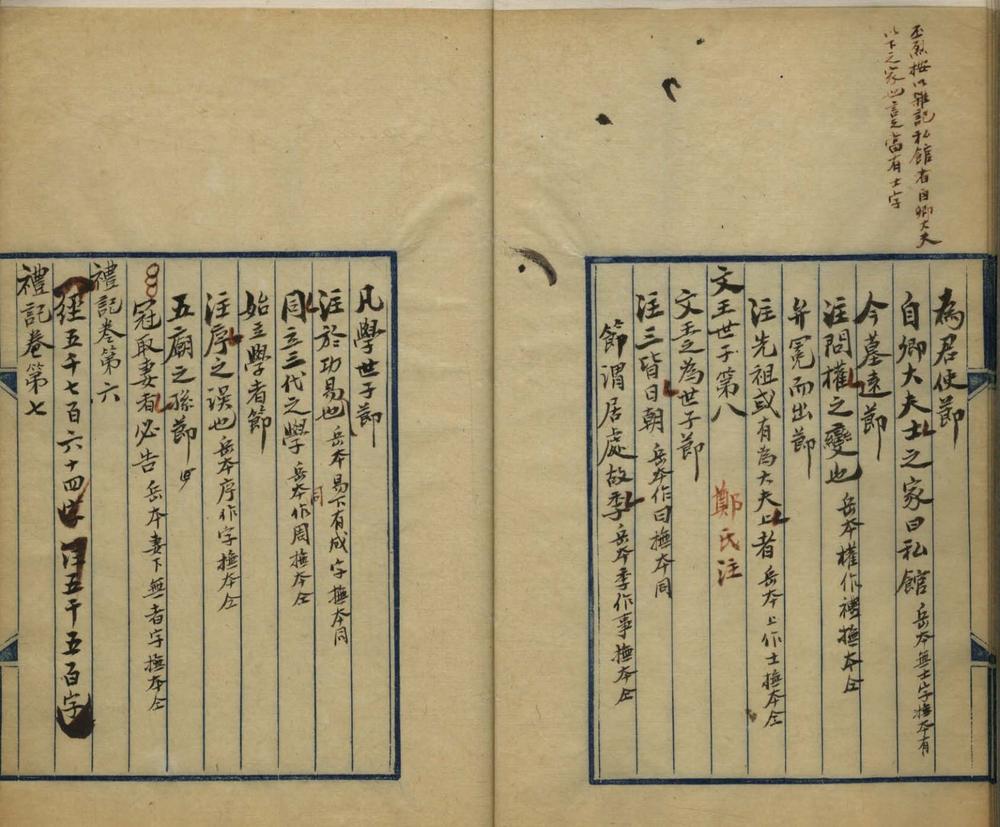 丕烈按以雜記私館者自卿大夫
以下之家也言之當有士字
為君使節
自卿大夫士之家曰私館 岳本無士字撫本有
今墓遠節
注問權之變也 岳本權作禮撫本仝
弁冕而出節
注先祖或有為大夫上者 岳本上作士撫本仝
文王世子第八 鄭氏注
文王之為世子節
注三皆曰朝 岳本作曰撫本同
節謂居處故季 岳本季作事撫本仝
凡學世子節
注於功易也 岳本易下有成字撫本同
同立三代之學 岳本作周撫本仝
同
始立學者節
注序之誤也 岳本序作字撫本仝
五廟之孫節
冠取妻者必告 岳本妻下無者字撫本仝
禮記卷第六
經五千七百六十四字 注五千五百字
禮記卷第七